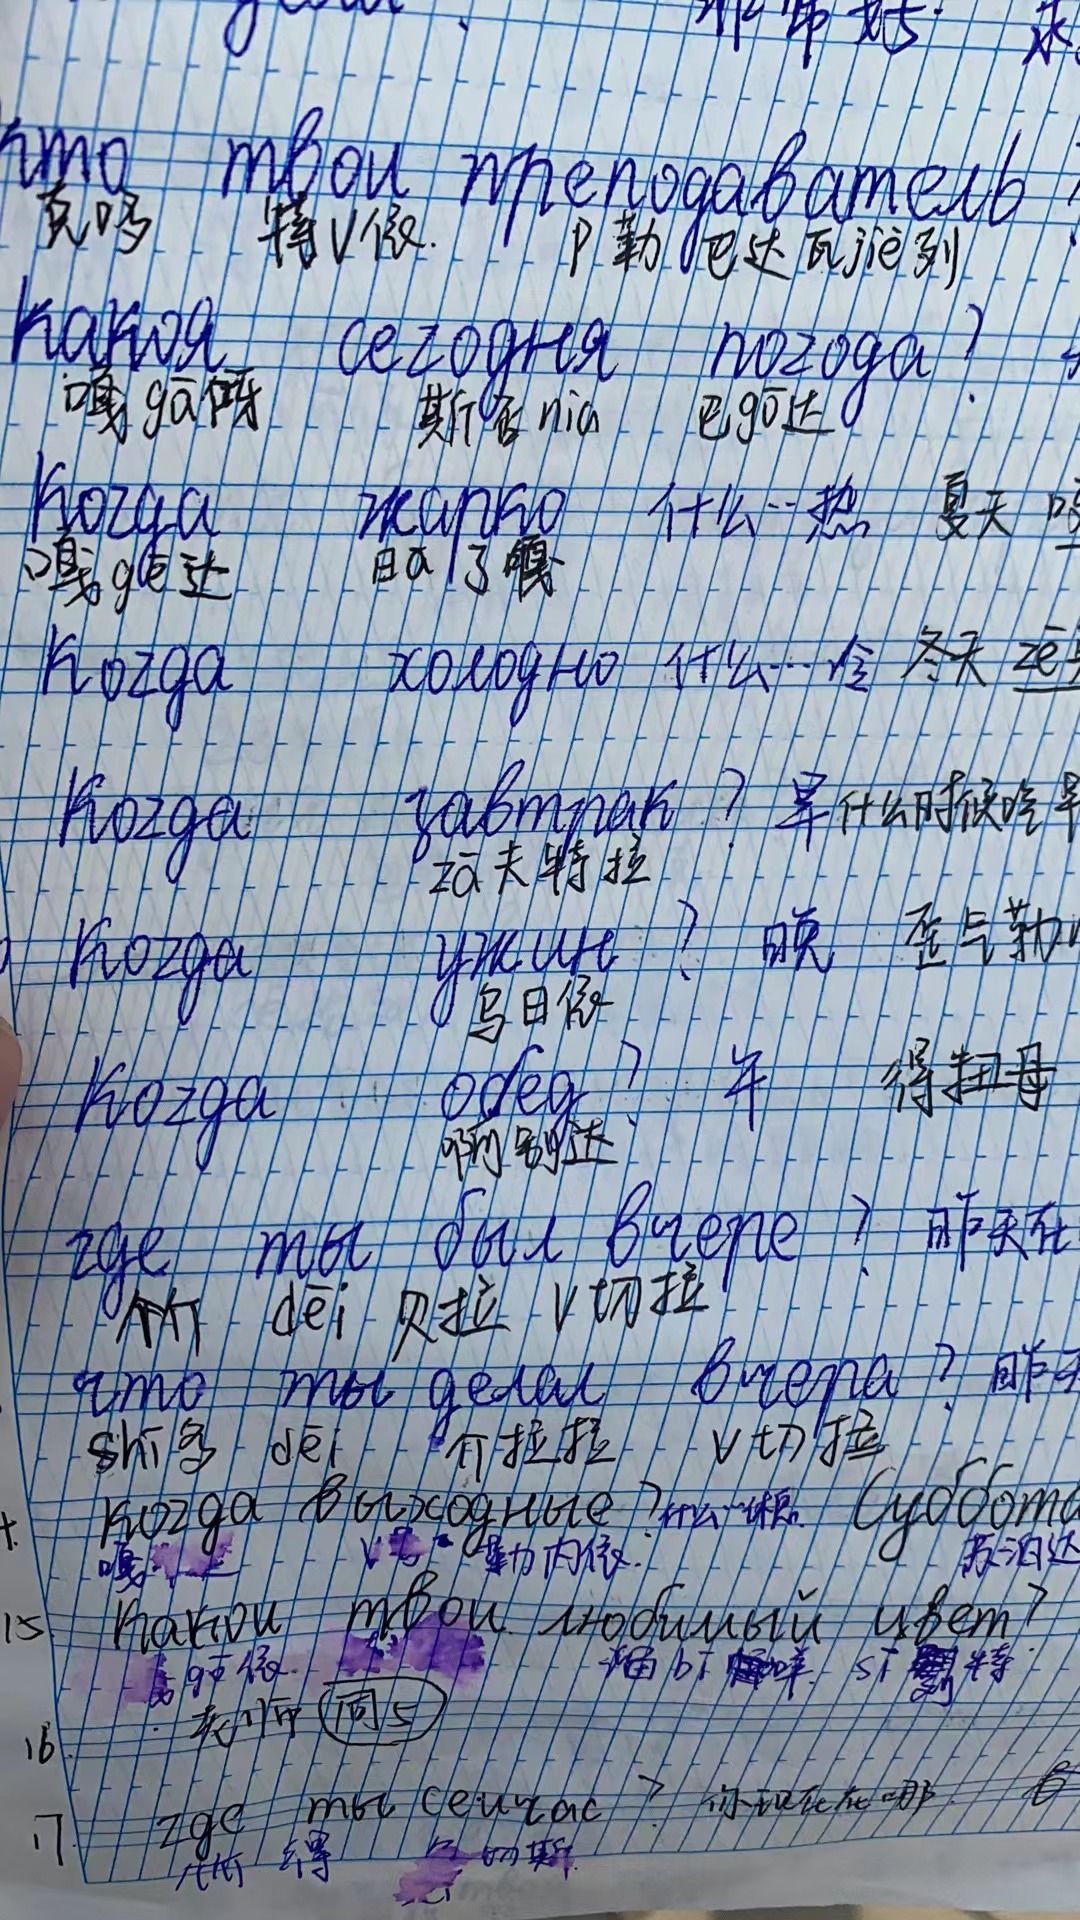 кто твои преподаватель?
克哆 特V依. P勒 巴达瓦jiē列
какоя сегодня погода?
嘎gā呀 斯否nia 巴gō达
когда жарко 什么…热 夏天
嘎gē达 日a了嘎
когда холодно 什么…冷 冬天 zē
когда завтрак? 早 什么时候吃早
zā夫特拉
когда ужин? 晚 歪气勒
乌日依
когда обед? 午 得扭母
啊别达
где ты был вчере? 昨天在
dēi 贝拉 V切拉
что ты делал вчера? 昨天
shī多 dēi 拉拉 V切拉
когда выходные? 什么…休息 Суббота
嘎 达 V 勒内依. 苏泊达
15 какои твои любимый цвет?
gō依. bī咩 sī 特
16. 老师 同5
17 где ты сеичас? 你现在在哪
得 切斯